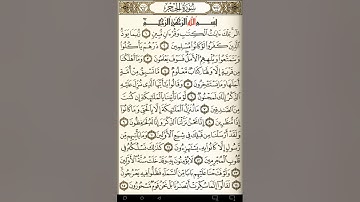 سُورَةُ الحِجْرِ
بِسْمِ اللَّهِ الرَّحْمَٰنِ الرَّحِيمِ
الٓر تِلْكَ ءَايَٰتُ ٱلْكِتَٰبِ وَقُرْءَانٍ مُّبِينٍ ١ رُّبَمَا يَوَدُّ
ٱلَّذِينَ كَفَرُوا۟ لَوْ كَانُوا۟ مُسْلِمِينَ ٢ ذَرْهُمْ يَأْكُلُوا۟
وَيَتَمَتَّعُوا۟ وَيُلْهِهِمُ ٱلْأَمَلُ فَسَوْفَ يَعْلَمُونَ ٣ وَمَآ أَهْلَكْنَا
مِن قَرْيَةٍ إِلَّا وَلَهَا كِتَابٌ مَّعْلُومٌ ٤ مَّا تَسْبِقُ مِنْ أُمَّةٍ
أَجَلَهَا وَمَا يَسْتَـْٔخِرُونَ ٥ وَقَالُوا۟ يَٰٓأَيُّهَا ٱلَّذِى نُزِّلَ عَلَيْهِ
ٱلذِّكْرُ إِنَّكَ لَمَجْنُونٌ ٦ لَّوْ مَا تَأْتِينَا بِٱلْمَلَٰٓئِكَةِ إِن كُنتَ
مِنَ ٱلصَّٰدِقِينَ ٧ مَا نُنَزِّلُ ٱلْمَلَٰٓئِكَةَ إِلَّا بِٱلْحَقِّ وَمَا كَانُوٓا۟
إِذًا مُّنظَرِينَ ٨ إِنَّا نَحْنُ نَزَّلْنَا ٱلذِّكْرَ وَإِنَّا لَهُۥ لَحَٰفِظُونَ ٩
وَلَقَدْ أَرْسَلْنَا مِن قَبْلِكَ فِى شِيَعِ ٱلْأَوَّلِينَ ١٠ وَمَا يَأْتِيهِم مِّن
رَّسُولٍ إِلَّا كَانُوا۟ بِهِۦ يَسْتَهْزِءُونَ ١١ كَذَٰلِكَ نَسْلُكُهُۥ فِى
قُلُوبِ ٱلْمُجْرِمِينَ ١٢ لَا يُؤْمِنُونَ بِهِۦ وَقَدْ خَلَتْ سُنَّةُ ٱلْأَوَّلِينَ
١٣ وَلَوْ فَتَحْنَا عَلَيْهِم بَابًا مِّنَ ٱلسَّمَآءِ فَظَلُّوا۟ فِيهِ يَعْرُجُونَ
١٤ لَقَالُوٓا۟ إِنَّمَا سُكِّرَتْ أَبْصَٰرُنَا بَلْ نَحْنُ قَوْمٌ مَّسْحُورُونَ ١٥